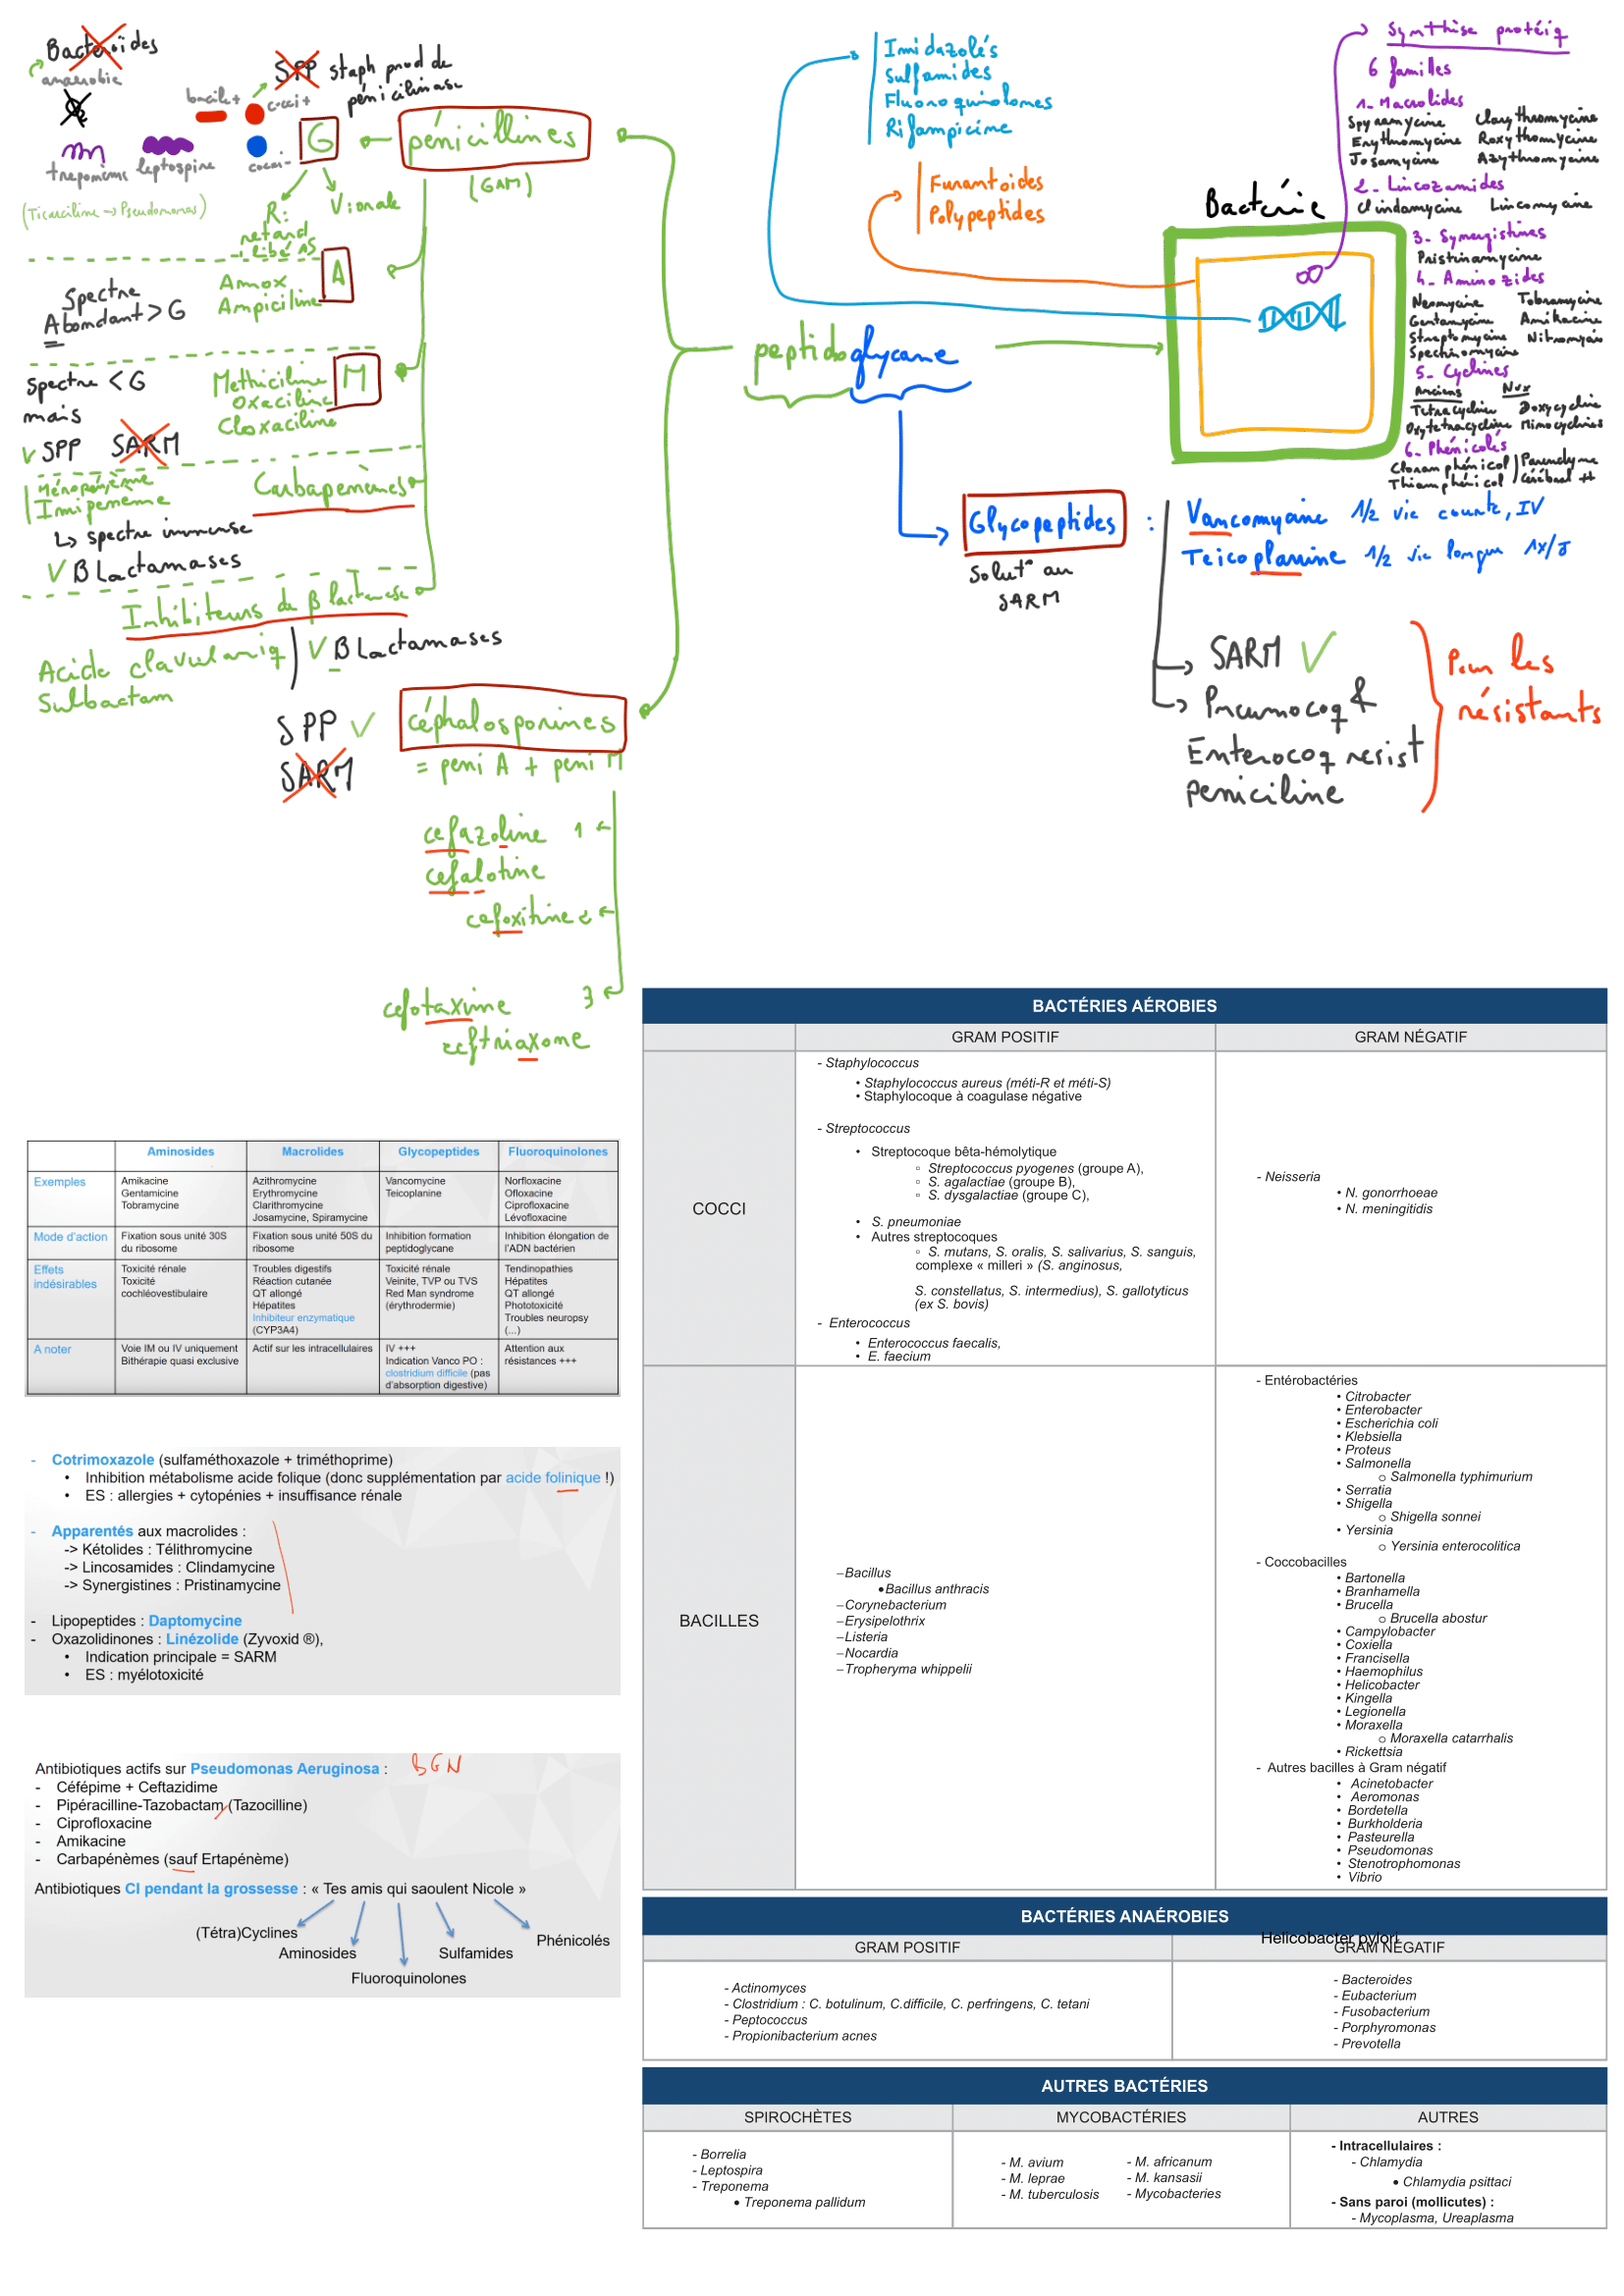 Bacteroïdes
anaerobie
SPP staph prod de
pénicilinase
bacille+
cocci+
cocci-
treponèms
leptospire
(Ticarciline → Pseudomonas)
G
pénicillines
(GAM)
R:
retard
Vorale
A
Amox
Ampiciline
Spectre
Abondant > G
Spectre < G
mais
SPP SARM
Methiciline
Oxaciline
Cloxaciline
M
Méropénème
Imipeneme
Carbapenèmes
↳ spectre immense
B Lactamases
Inhibiteurs de β lactamase
Acide clavulaniq
Sulbactam
B Lactamases
SPP
SARM
céphalosporines
= peni A + peni M
cefazoline 1
cefalotine
cefoxitine 2
cefotaxime 3
ceftriaxone
Imidazolés
Sulfamides
Fluoroquinolones
Rifampicine
Furantoides
Polypeptides
peptidoglycane
Bactérie
Synthèse protéiq
6 familles
1- Macrolides
Spyramycine Clarythromycine
Erythromycine Roxythomycine
Josamycine Azythromycine
2- Lincozamides
Clindamycine Lincomycine
3- Synergistines
Pristinamycine
4- Aminozides
Neomycine Tobramycine
Gentamycine Amikacine
Streptomycine
Spectinomycine
5- Cyclines
Anciens Nvx
Tetracycline Doxycycline
Oxytetracycline Minocyclines
6- Phénicolés
Cloramphénicol
Thiamphénicol
Glycopeptides :
Solut° au
SARM
Vancomycine 1/2 vie courte, IV
Teicoplanine 1/2 vie longue 1x/J
SARM
Pneumocoq &
Enterocoq resist
peniciline
Pour les
résistants
Aminosides Macrolides Glycopeptides Fluoroquinolones
Exemples
Amikacine
Gentamicine
Tobramycine
Azithromycine
Erythromycine
Clarithromycine
Josamycine, Spiramycine
Vancomycine
Teicoplanine
Norfloxacine
Ofloxacine
Ciprofloxacine
Lévofloxacine
Mode d'action
Fixation sous unité 30S
du ribosome
Fixation sous unité 50S du
ribosome
Inhibition formation
peptidoglycane
Inhibition élongation de
l'ADN bactérien
Effets
indésirables
Toxicité rénale
Toxicité
cochléovestibulaire
Troubles digestifs
Réaction cutanée
QT allongé
Hépatites
Inhibiteur enzymatique
(CYP3A4)
Toxicité rénale
Veinite, TVP ou TVS
Red Man syndrome
(érythrodermie)
Tendinopathies
Hépatites
QT allongé
Phototoxicité
Troubles neuropsy
(...)
A noter
Voie IM ou IV uniquement
Bithérapie quasi exclusive
Actif sur les intracellulaires
IV +++
Indication Vanco PO :
clostridium difficile (pas
d'absorption digestive)
Attention aux
résistances +++
- Cotrimoxazole (sulfaméthoxazole + triméthoprime)
• Inhibition métabolisme acide folique (donc supplémentation par acide folinique !)
• ES : allergies + cytopénies + insuffisance rénale
- Apparentés aux macrolides :
-> Kétolides : Télithromycine
-> Lincosamides : Clindamycine
-> Synergistines : Pristinamycine
- Lipopeptides : Daptomycine
- Oxazolidinones : Linézolide (Zyvoxid ®),
• Indication principale = SARM
• ES : myélotoxicité
Antibiotiques actifs sur Pseudomonas Aeruginosa : BGN
- Céfépime + Ceftazidime
- Pipéracilline-Tazobactam (Tazocilline)
- Ciprofloxacine
- Amikacine
- Carbapénèmes (sauf Ertapénème)
Antibiotiques CI pendant la grossesse : « Tes amis qui saoulent Nicole »
(Tétra)Cyclines
Aminosides
Fluoroquinolones
Sulfamides
Phénicolés
BACTÉRIES AÉROBIES
GRAM POSITIF GRAM NÉGATIF
COCCI
- Staphylococcus
• Staphylococcus aureus (méti-R et méti-S)
• Staphylocoque à coagulase négative
- Streptococcus
• Streptocoque bêta-hémolytique
▫ Streptococcus pyogenes (groupe A),
▫ S. agalactiae (groupe B),
▫ S. dysgalactiae (groupe C),
• S. pneumoniae
• Autres streptocoques
▫ S. mutans, S. oralis, S. salivarius, S. sanguis,
complexe « milleri » (S. anginosus,
S. constellatus, S. intermedius), S. gallotyticus
(ex S. bovis)
- Enterococcus
• Enterococcus faecalis,
• E. faecium
- Neisseria
• N. gonorrhoeae
• N. meningitidis
BACILLES
–Bacillus
•Bacillus anthracis
–Corynebacterium
–Erysipelothrix
–Listeria
–Nocardia
–Tropheryma whippelii
- Entérobactéries
• Citrobacter
• Enterobacter
• Escherichia coli
• Klebsiella
• Proteus
• Salmonella
o Salmonella typhimurium
• Serratia
• Shigella
o Shigella sonnei
• Yersinia
o Yersinia enterocolitica
- Coccobacilles
• Bartonella
• Branhamella
• Brucella
o Brucella abostur
• Campylobacter
• Coxiella
• Francisella
• Haemophilus
• Helicobacter
• Kingella
• Legionella
• Moraxella
o Moraxella catarrhalis
• Rickettsia
- Autres bacilles à Gram négatif
• Acinetobacter
• Aeromonas
• Bordetella
• Burkholderia
• Pasteurella
• Pseudomonas
• Stenotrophomonas
• Vibrio
BACTÉRIES ANAÉROBIES
Helicobacter pylori
GRAM POSITIF GRAM NÉGATIF
- Actinomyces
- Clostridium : C. botulinum, C.difficile, C. perfringens, C. tetani
- Peptococcus
- Propionibacterium acnes
- Bacteroides
- Eubacterium
- Fusobacterium
- Porphyromonas
- Prevotella
AUTRES BACTÉRIES
SPIROCHÈTES MYCOBACTÉRIES AUTRES
- Borrelia
- Leptospira
- Treponema
• Treponema pallidum
- M. avium
- M. leprae
- M. tuberculosis
- M. africanum
- M. kansasii
- Mycobacteries
- Intracellulaires :
- Chlamydia
• Chlamydia psittaci
- Sans paroi (mollicutes) :
- Mycoplasma, Ureaplasma